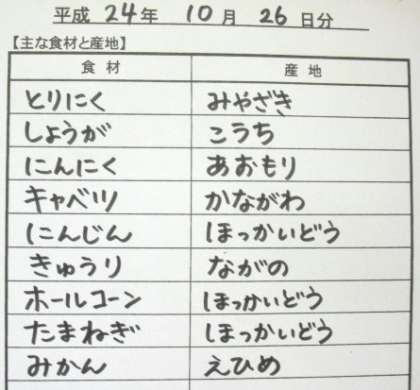 平成 24年 10月 26日分
【主な食材と産地】
食材 産地
とりにく みやざき
しょうが こうち
にんにく あおもり
キャベツ かながわ
にんじん ほっかいどう
きゅうり ながの
ホールコーン ほっかいどう
たまねぎ ほっかいどう
みかん えひめ